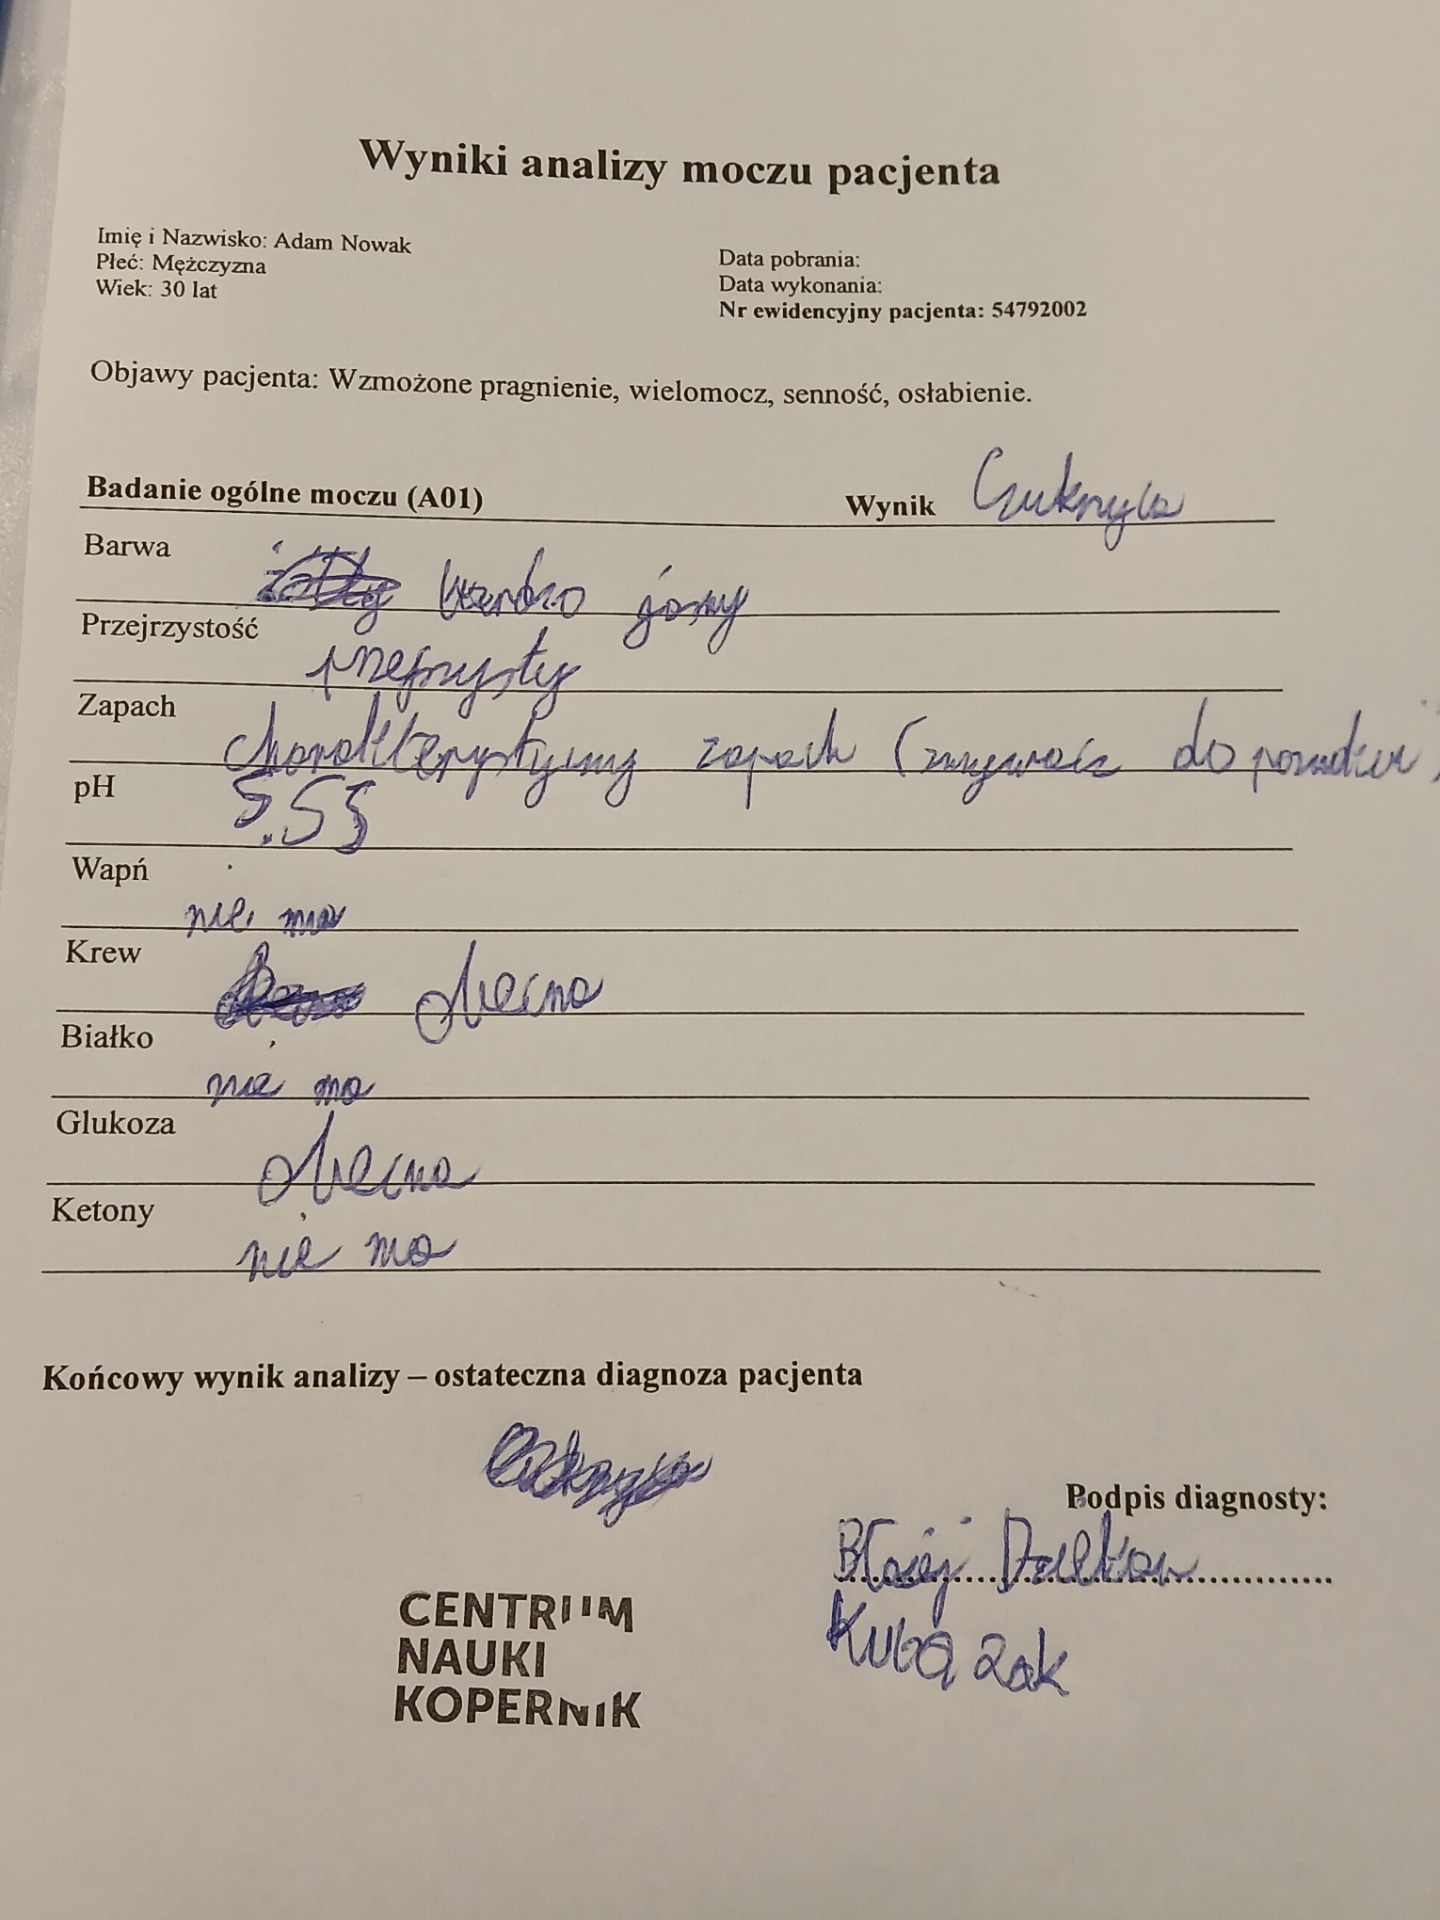 Wyniki analizy moczu pacjenta
Imię i Nazwisko: Adam Nowak
Płeć: Mężczyzna
Wiek: 30 lat
Data pobrania:
Data wykonania:
Nr ewidencyjny pacjenta: 54792002
Objawy pacjenta: Wzmożone pragnienie, wielomocz, senność, osłabienie.
Badanie ogólne moczu (A01) Wynik Cukrzyca
Barwa
bardzo jasny
Przejrzystość
przejrzysty
Zapach
charakterystyczny zapach (zmywacz do paznokci)
pH
5.55
Wapń
nie ma
Krew
obecna
Białko
nie ma
Glukoza
obecna
Ketony
nie ma
Końcowy wynik analizy – ostateczna diagnoza pacjenta
Podpis diagnosty:
Błażej
Kuba Żak
CENTRUM
NAUKI
KOPERNIK